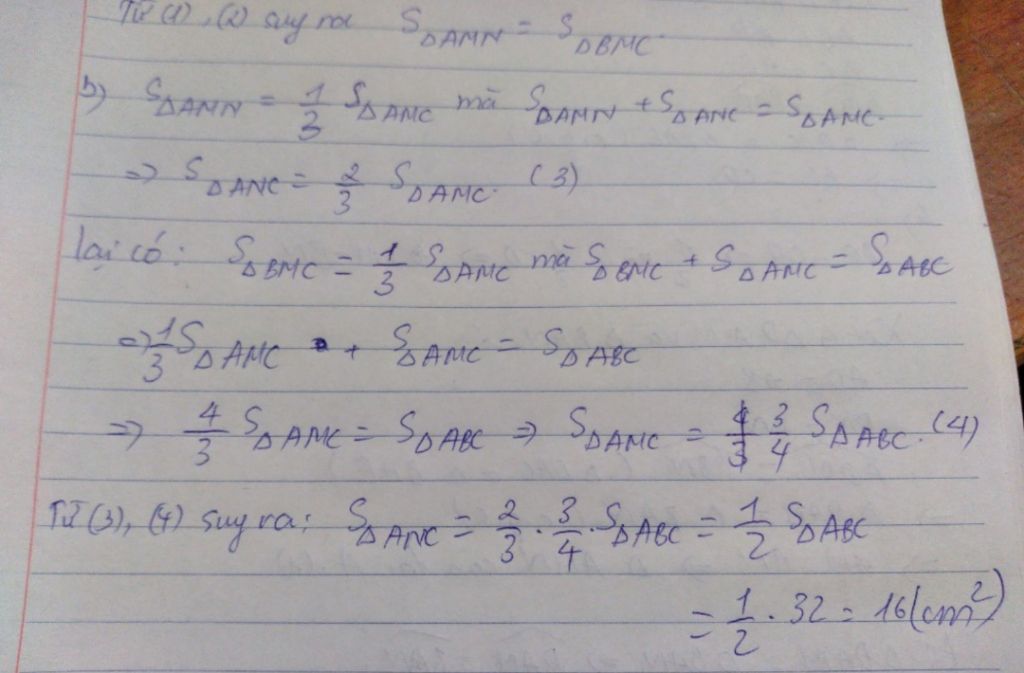 Từ (1), (2) suy ra S△AMN = S△BMC.
b) S△AMN = 1/3 S△AMC mà S△AMN + S△ANC = S△AMC.
=> S△ANC = 2/3 S△AMC. (3)
lại có: S△BMC = 1/3 S△AMC mà S△BMC + S△AMC = S△ABC
=> 1/3 S△AMC + S△AMC = S△ABC
=> 4/3 S△AMC = S△ABC => S△AMC = 3/4 S△ABC. (4)
Từ (3), (4) suy ra: S△ANC = 2/3 . 3/4 . S△ABC = 1/2 S△ABC
= 1/2 . 32 = 16 (cm²)